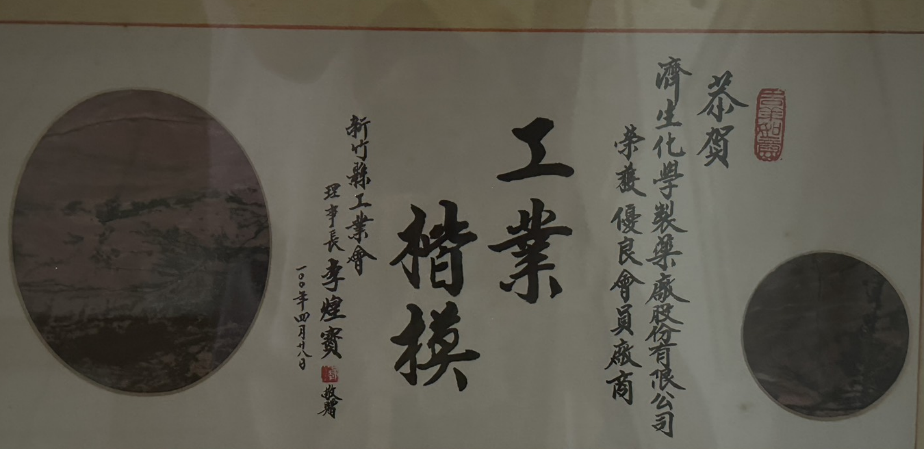 恭賀
濟生化學製藥廠股份有限公司
榮獲優良會員廠商
工業
楷模
新竹縣工業會
理事長 李煌寶 敬贈
一〇〇年四月廿八日